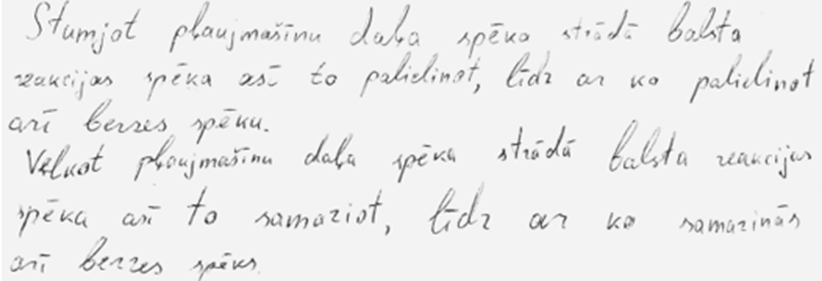 Stumjot pļaujmašīnu daļa spēka strādā balsta
reakcijas spēka asī to palielinot, līdz ar ko palielinot
arī berzes spēku.
Velkot pļaujmašīnu daļa spēka strādā balsta reakcijas
spēka asī to samaziot, līdz ar ko samazinās
arī berzes spēks.